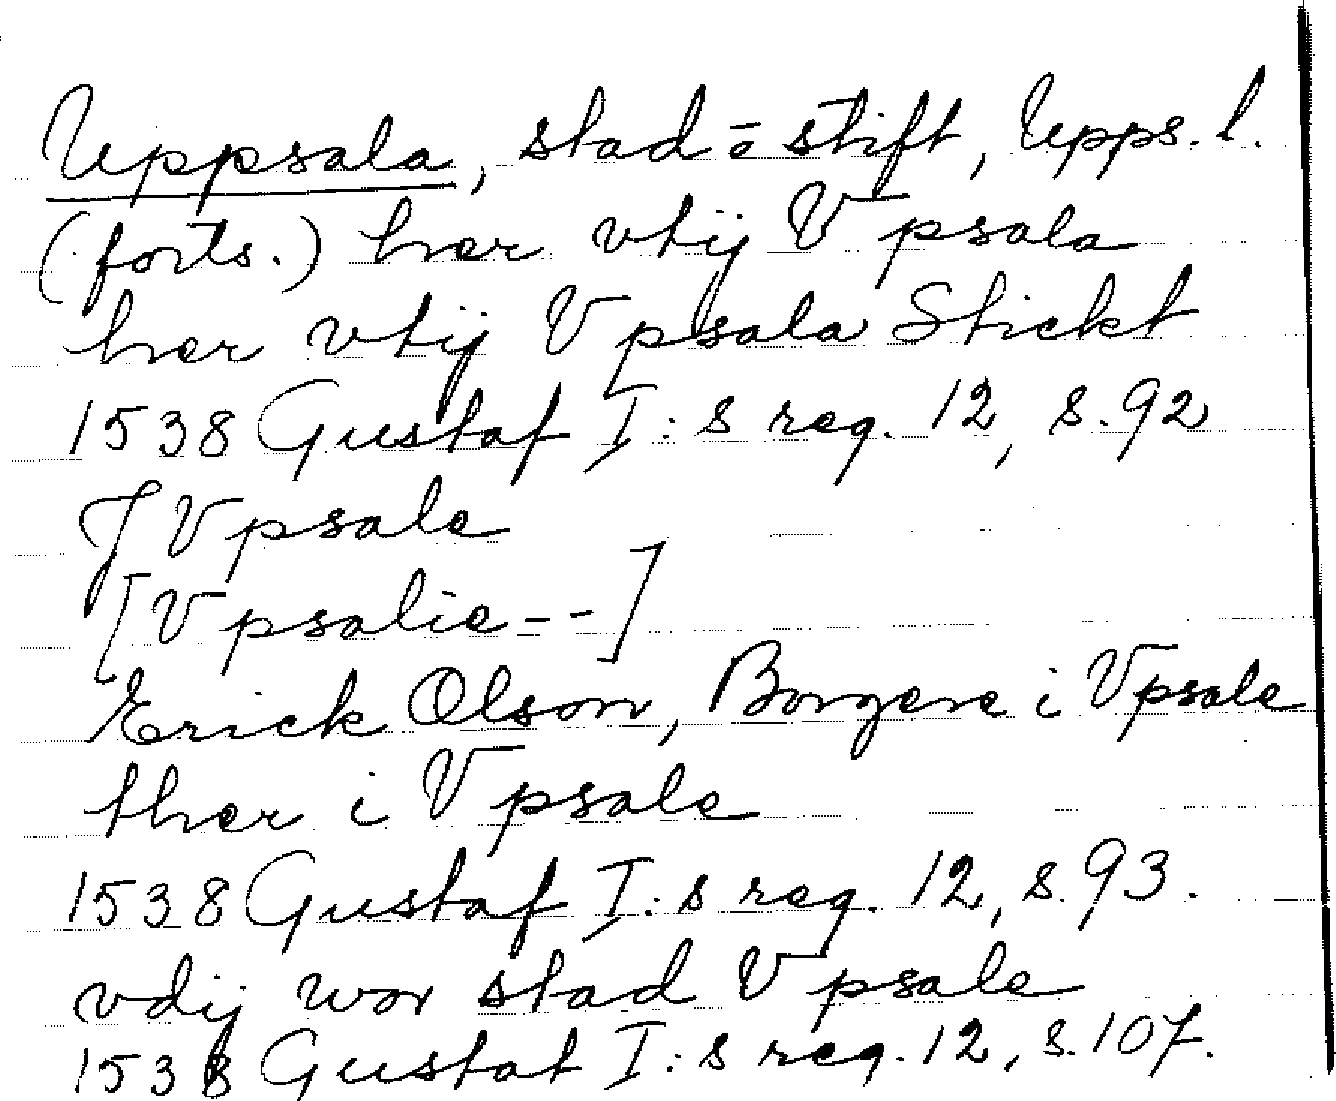 Uppsala, stad o stift, Upps. l.
(forts.) her vtij Vpsala
her vtij Vpsala Stickt
1538 Gustaf I:s reg. 12, s. 92
J Vpsale
[Vpsalie--]
Erick Olson, Borgere i Vpsale
ther i Vpsale
1538 Gustaf I:s reg. 12, s. 93.
vdij wor stad Vpsale
1538 Gustaf I:s reg. 12, s. 107.